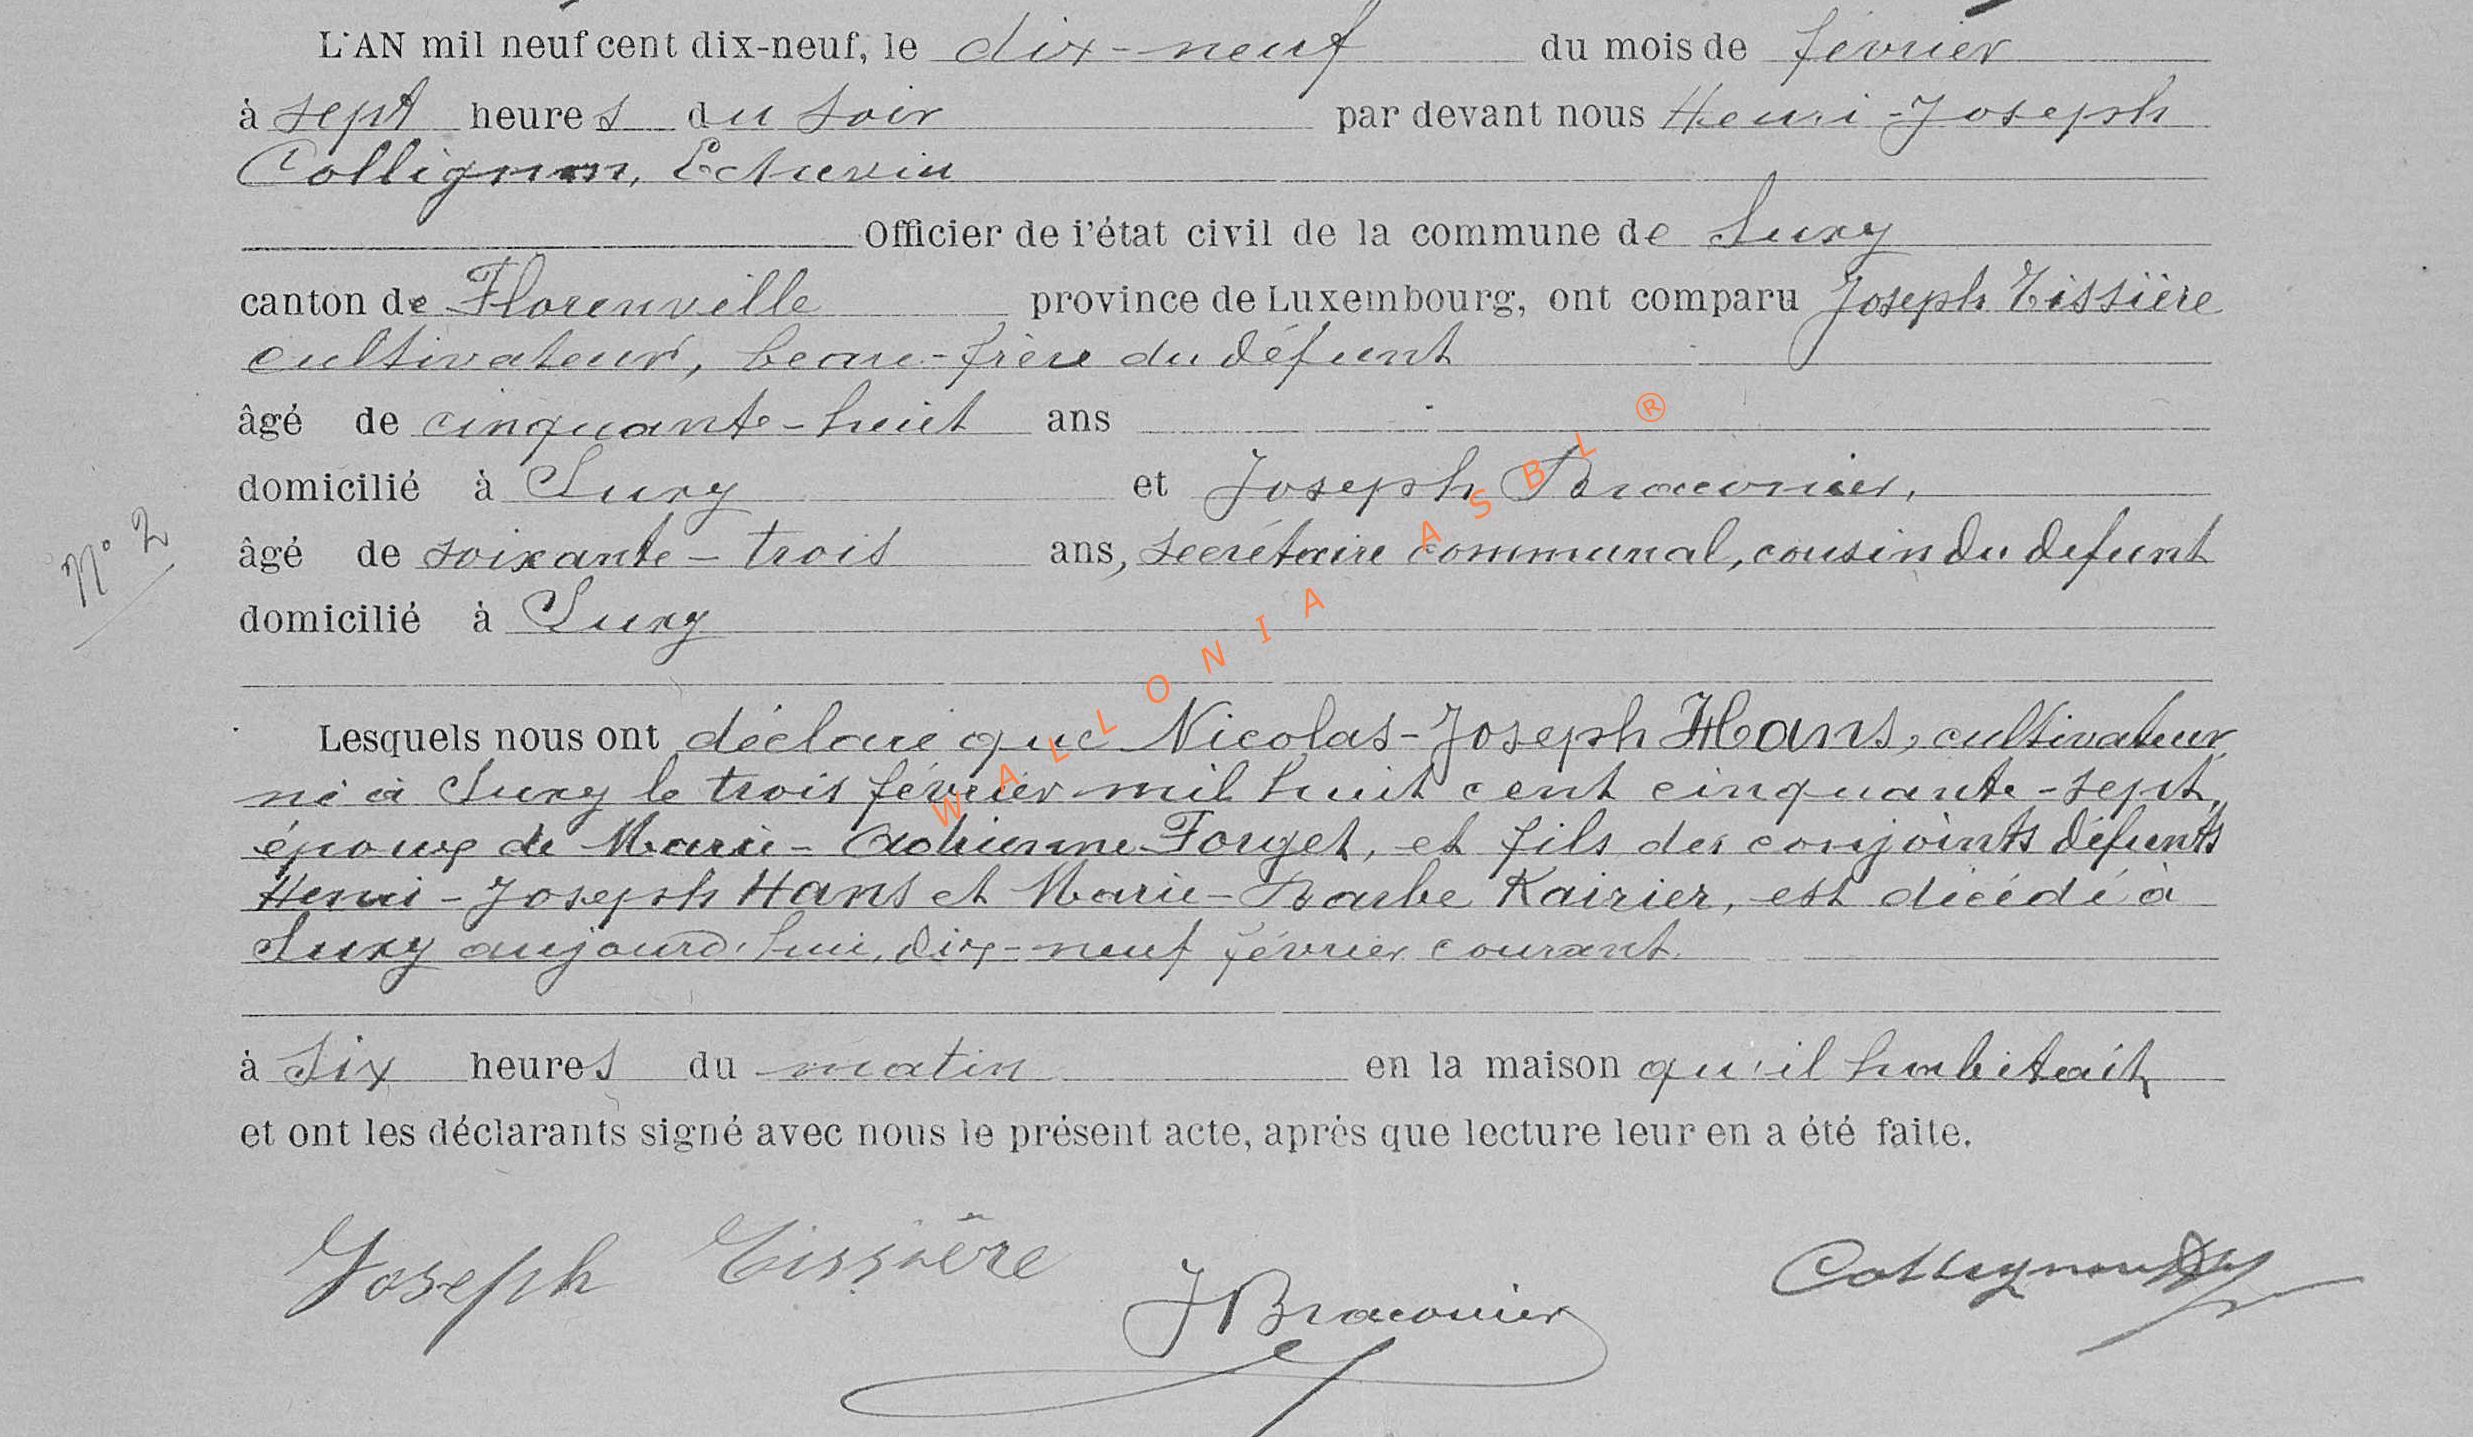 L'AN mil neuf cent dix-neuf, le dix-neuf du mois de février
à sept heures du soir par devant nous Henri-Joseph
Collignon, Echevin
Officier de l'état civil de la commune de Suxy
canton de Florenville province de Luxembourg, ont comparu Joseph Tissière
cultivateur, beau-frère du défunt
âgé de cinquante-huit ans
domicilié à Suxy et Joseph Braconier,
N° 2
âgé de soixante-trois ans, secrétaire communal, cousin du defunt
domicilié à Suxy
Lesquels nous ont déclaré que Nicolas-Joseph Hans, cultivateur,
né à Suxy le trois février mil huit cent cinquante-sept,
époux de Marie-Adrienne Forget, et fils des conjoints défunts
Henri-Joseph Hans et Marie-Barbe Kairier, est décédé à
Suxy aujourd'hui, dix-neuf février courant.
à six heures du matin en la maison qu'il habitait,
et ont les déclarants signé avec nous le présent acte, après que lecture leur en a été faite.
Joseph Tissière
JBraconier
Collignon
WALLONIA ASBL ®